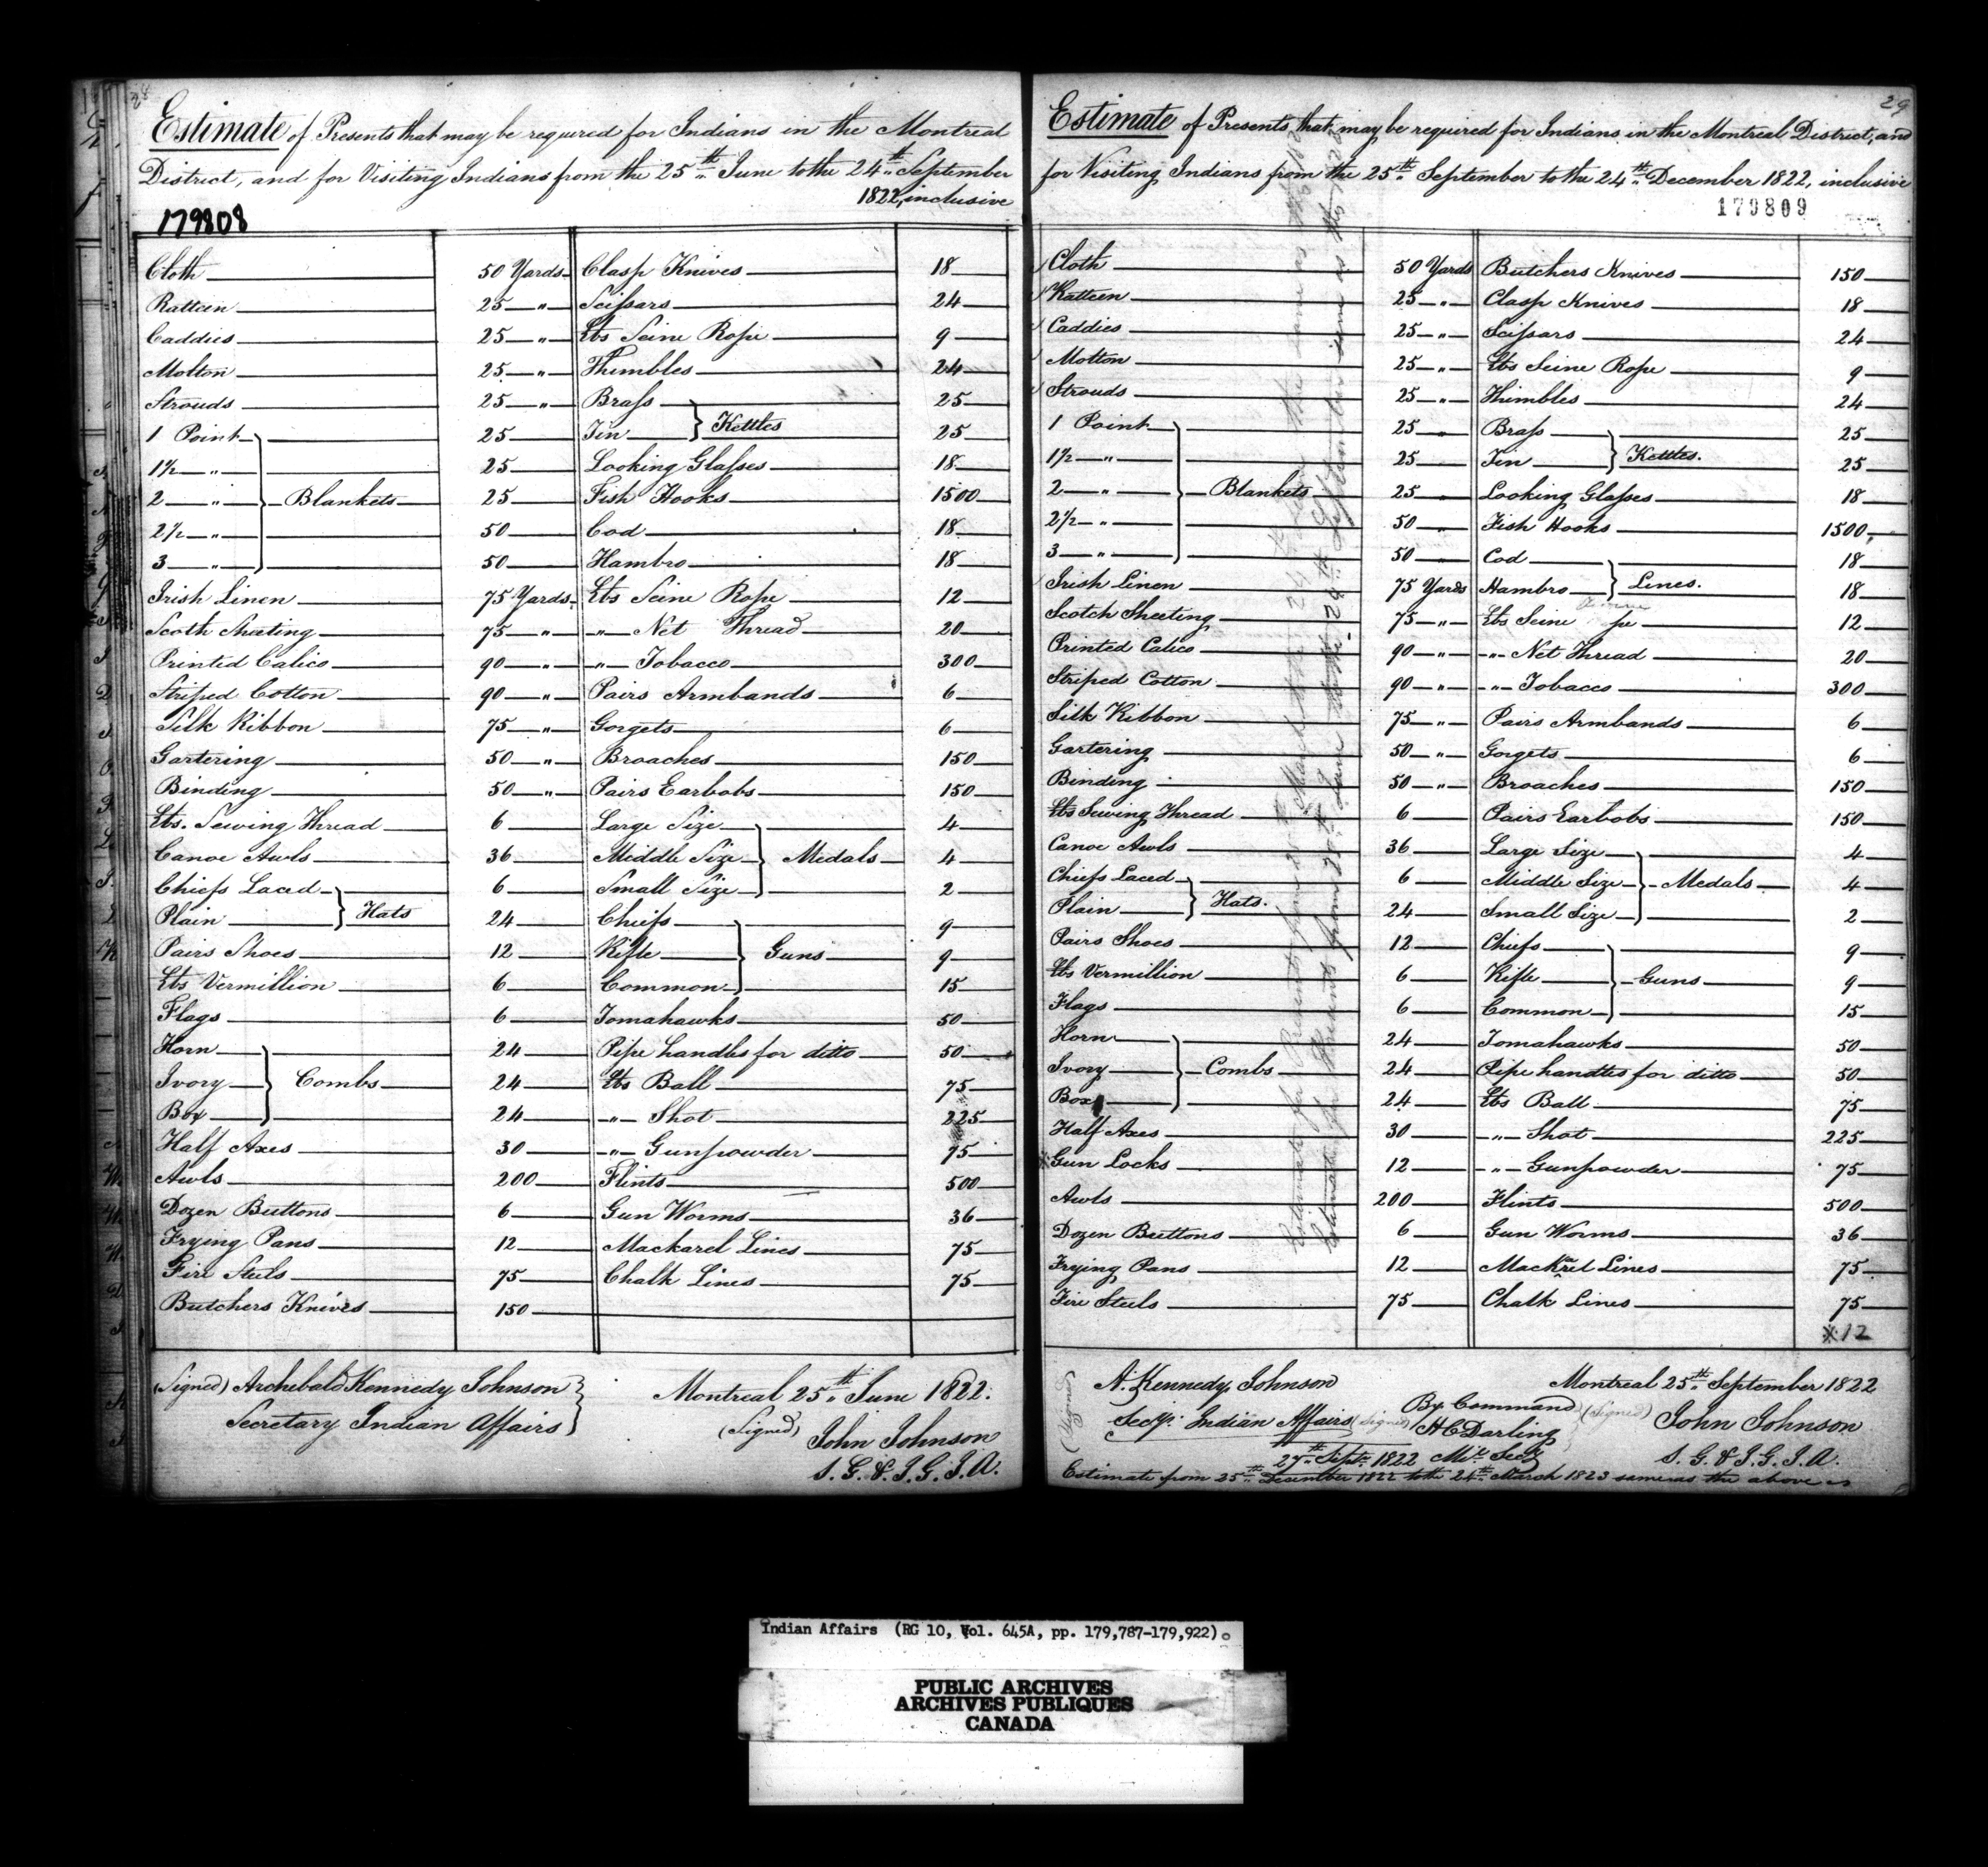 28
Estimate of Presents that may be required for Indians in the Montreal
District, and for Visiting Indians from the 25th June to the 24th September
1822, inclusive
179808
Cloth 50 Yards
Ratteen 25 "
Caddies 25 "
Molton 25 "
Strouds 25 "
1 Point 25
1½ " 25
2 " Blankets 25
2½ " 50
3 " 50
Irish Linen 75 Yards
Scoth Sheeting 75 "
Printed Calico 90 "
Striped Cotton 90 "
Silk Ribbon 75 "
Gartering 50 "
Binding 50 "
Lbs. Sewing Thread 6
Canoe Awls 36
Chiefs Laced 6
Plain Hats 24
Pairs Shoes 12
Lbs Vermillion 6
Flags 6
Horn 24
Ivory Combs 24
Box 24
Half Axes 30
Awls 200
Dozen Buttons 6
Frying Pans 12
Fire Steels 75
Butchers Knives 150
Clasp Knives 18
Scissars 24
Lbs Seine Rope 9
Thimbles 24
Brass 25
Tin Kettles 25
Looking Glasses 18
Fish Hooks 1500
Cod 18
Hambro 18
Lbs Seine Rope 12
" Net Thread 20
" Tobacco 300
Pairs Armbands 6
Gorgets 6
Broaches 150
Pairs Earbobs 150
Large Size 4
Middle Size Medals 4
Small Size 2
Chiefs 9
Rifle Guns 9
Common 15
Tomahawks 50
Pipe handles for ditto 50
Lbs Ball 75
" Shot 225
" Gunpowder 75
Flints 500
Gun Worms 36
Mackarel Lines 75
Chalk Lines 75
(Signed) Archibald Kennedy Johnson
Secretary Indian Affairs
Montreal 25th June 1822.
(Signed) John Johnson
S. G. & I. G. I. A.
29
Estimate of Presents that may be required for Indians in the Montreal District, and
for Visiting Indians from the 25th September to the 24th December 1822, inclusive
179809
Cloth 50 Yards
Ratteen 25 "
Caddies 25 "
Molton 25 "
Strouds 25 "
1 Point 25 "
1½ " 25
2 " Blankets 25 "
2½ " 50 "
3 " 50
Irish Linen 75 Yards
Scotch Sheeting 75 "
Printed Calico 90 "
Striped Cotton 90 "
Silk Ribbon 75 "
Gartering 50 "
Binding 50 "
Lbs Sewing Thread 6
Canoe Awls 36
Chiefs Laced 6
Plain Hats. 24
Pairs Shoes 12
Lbs Vermillion 6
Flags 6
Horn 24
Ivory Combs 24
Box 24
Half Axes 30
※Gun Locks 12
Awls 200
Dozen Buttons 6
Frying Pans 12
Fire Steels 75
Butchers Knives 150
Clasp Knives 18
Scissars 24
Lbs Seine Rope 9
Thimbles 24
Brass 25
Tin Kettles. 25
Looking Glasses 18
Fish Hooks 1500
Cod 18
Hambro Lines. 18
Lbs Seine 12
" Net Thread 20
" Tobacco 300
Pairs Armbands 6
Gorgets 6
Broaches 150
Pairs Earbobs 150
Large Size 4
Middle Size Medals 4
Small Size 2
Chiefs 9
Rifle Guns 9
Common 15
Tomahawks 50
Pipe handles for ditto 50
Lbs Ball 75
" Shot 225
" Gunpowder 75
Flints 500
Gun Worms 36
Mackrel Lines 75
Chalk Lines 75
※12
(Signed) A. Kennedy Johnson
Secy. Indian Affairs
By Command
(Signed) H C Darling
27th Sept. 1822 Mil. Secy
Montreal 25th September 1822
(Signed) John Johnson
S. G. & I. G. I. A.
Estimate from 25th December 1822 to the 24th March 1823 same as the above
Indian Affairs (RG 10, Vol. 645A, pp. 179,787-179,922)
PUBLIC ARCHIVES
ARCHIVES PUBLIQUES
CANADA